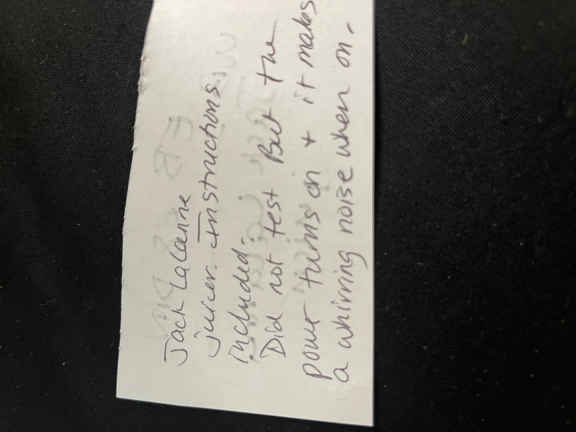 Jack Lalanne
juicer. Instructions
included.
Did not test But the
power turns on + it makes
a whirring noise when on.